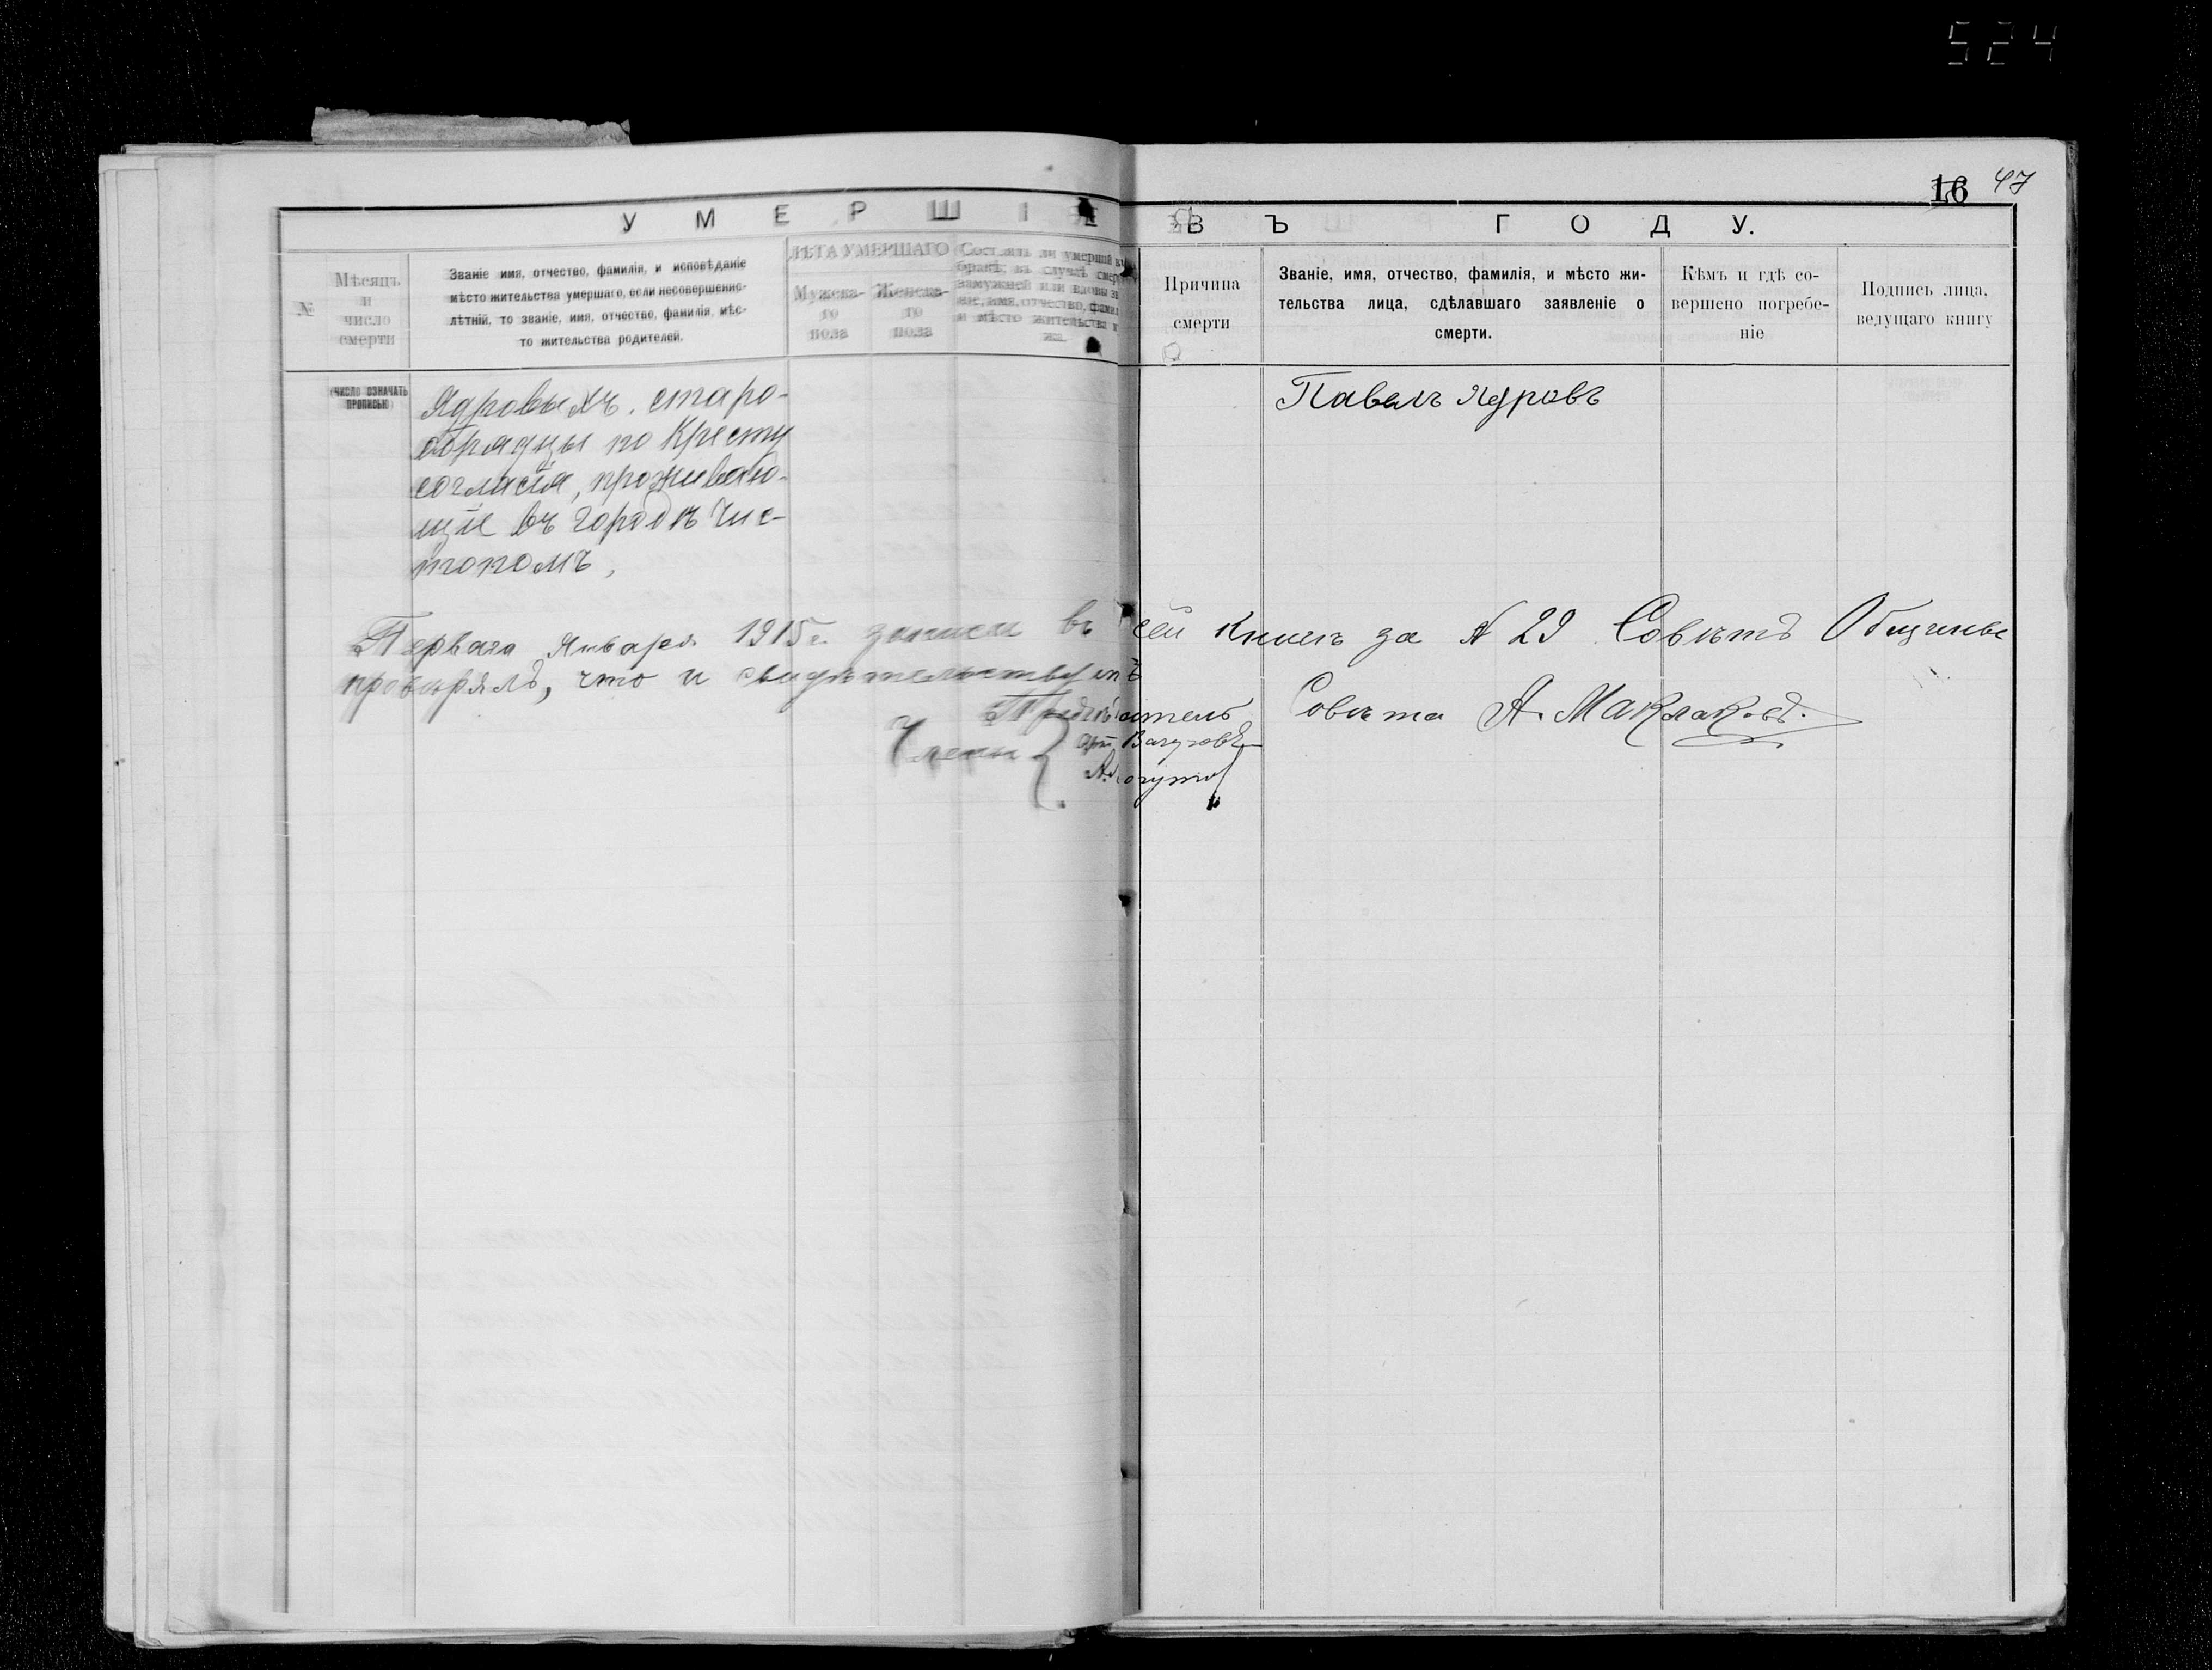 524
16 47
УМЕРШІЕ ВЪ ГОДУ.
№
Мѣсяцъ
и
число
смерти
Званіе имя, отчество, фамилія, и исповѣданіе
мѣсто жительства умершаго, если несовершенно-
лѣтній, то званіе, имя, отчество, фамилія, мѣс-
то жительства родителей.
ЛѢТА УМЕРШАГО
Мужска-
го
пола
Женска-
го
пола
Состоялъ ли умершій въ
бракѣ, въ случаѣ смер
замужней или вдовы зв
ніе, имя, отчество, фамил
и мѣсто жительства м
жа.
Причина
смерти
Званіе, имя, отчество, фамилія, и мѣсто жи-
тельства лица, сдѣлавшаго заявленіе о
смерти.
Кѣмъ и гдѣ со-
вершено погребе-
ніе
Подпись лица,
ведущаго книгу
(ЧИСЛО ОЗНАЧАТЬ
ПРОПИСЬЮ)
Ядровыхъ, старо-
обрядцы по Кресту
согласія, проживаю-
щіе въ городѣ Чис-
тополѣ,
Павелъ Ядровъ
Перваго Января 1915 г. записи въ сей книгѣ за № 29 Совѣтъ Общины
провѣрялъ, что и свидѣтельствуетъ
Предсѣдатель Совѣта А. Маклаковъ.
Члены